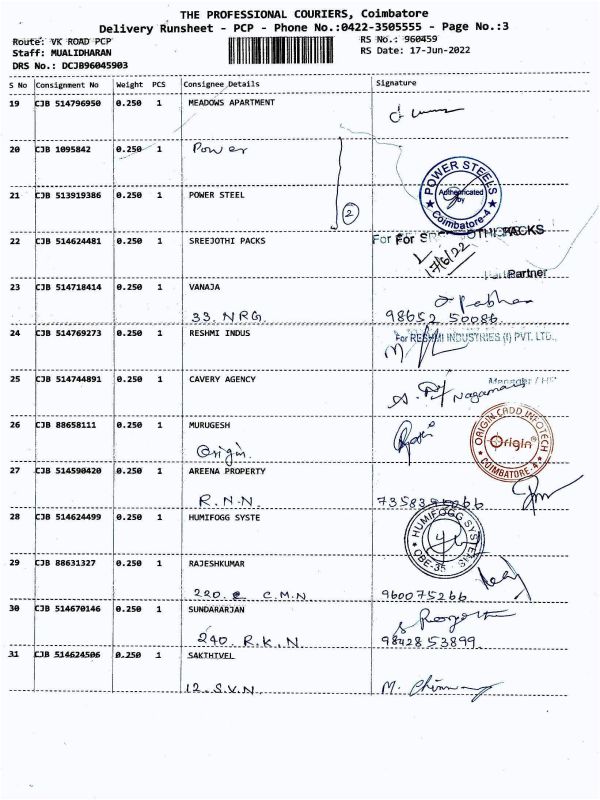 THE PROFESSIONAL COURIERS, Coimbatore
Delivery Runsheet - PCP - Phone No.:0422-3505555 - Page No.:3
Route: VK ROAD PCP
RS No.: 960459
Staff: MUALIDHARAN
RS Date: 17-Jun-2022
DRS No.: DCJB96045903
S No Consignment No Weight PCS Consignee Details Signature
19 CJB 514796950 0.250 1 MEADOWS APARTMENT
20 CJB 1095842 0.250 1 Power
21 CJB 513919386 0.250 1 POWER STEEL
2
POWER STEELS
Authenticated by
Coimbatore-4
22 CJB 514624481 0.250 1 SREEJOTHI PACKS
For For PACKS
17/6/22
Partner
23 CJB 514718414 0.250 1 VANAJA
33. N.R.G. 98652 50086
24 CJB 514769273 0.250 1 RESHMI INDUS
For RESHMI INDUSTRIES (I) PVT. LTD.,
25 CJB 514744891 0.250 1 CAVERY AGENCY
26 CJB 88658111 0.250 1 MURUGESH
Origin.
ORIGIN CADD INFOTECH
Origin
COIMBATORE-4
27 CJB 514590420 0.250 1 AREENA PROPERTY
R.N.N.
28 CJB 514624499 0.250 1 HUMIFOGG SYSTE
HUMIFOGG SYSTEMS
CBE-35
29 CJB 88631327 0.250 1 RAJESHKUMAR
220. C.M.N. 960075266
30 CJB 514670146 0.250 1 SUNDARARJAN
240. R.K.N. 98428 53899
31 CJB 514624506 0.250 1 SAKTHIVEL
12. S.V.N.